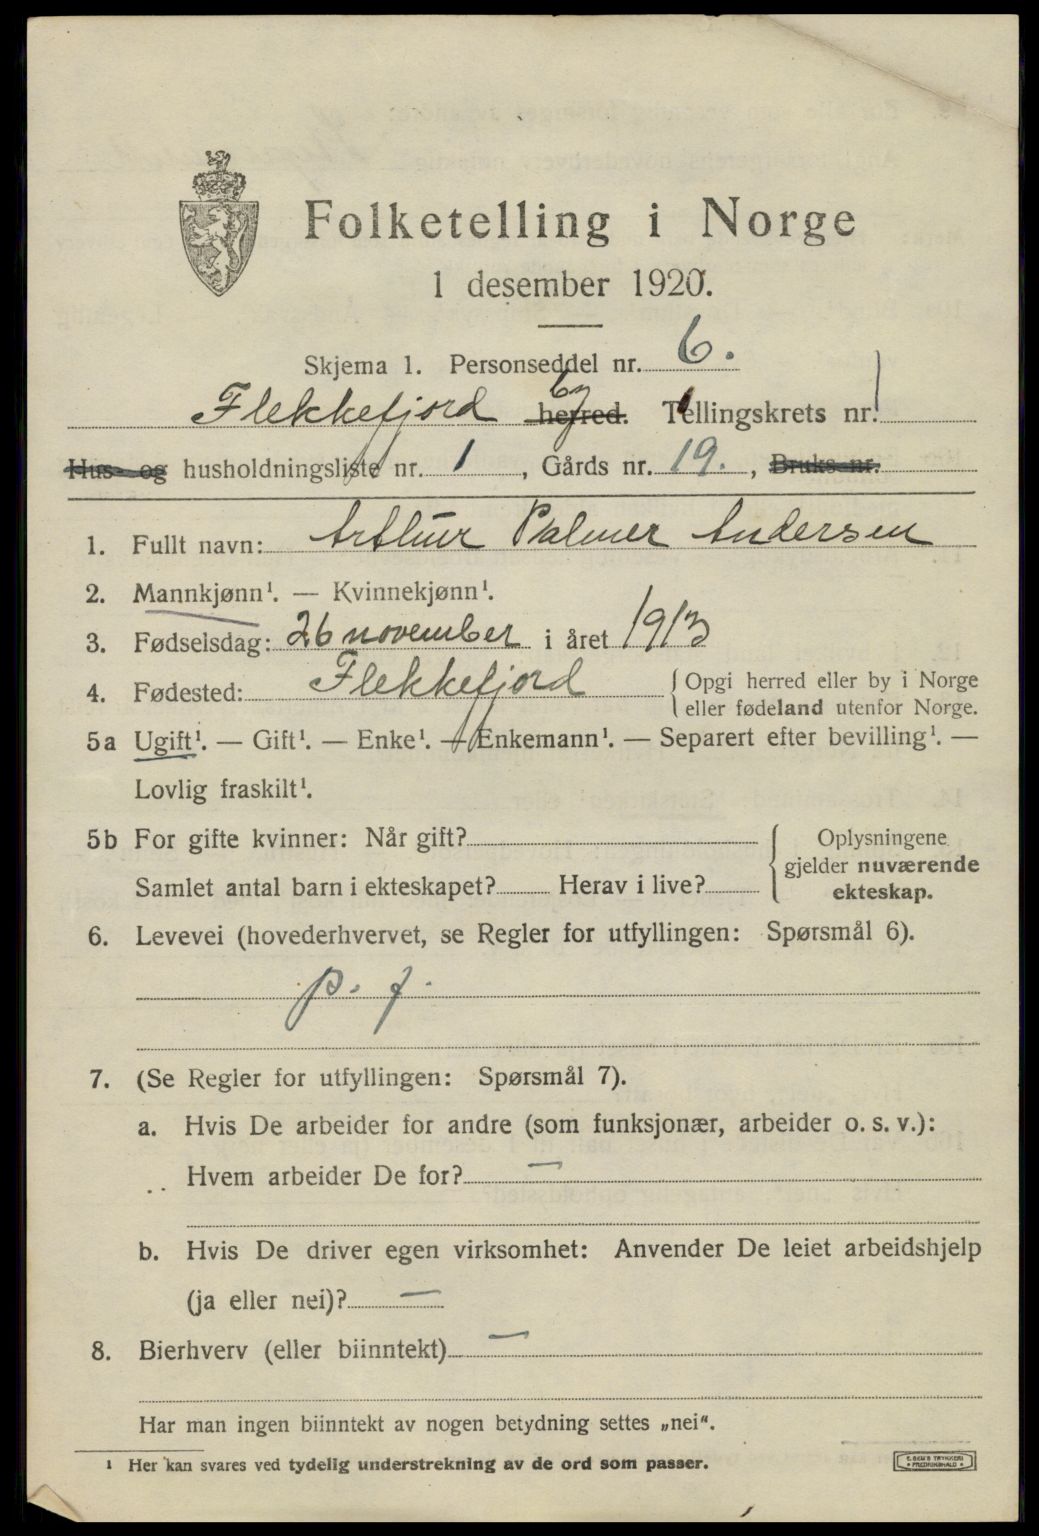 Folketelling i Norge
1 desember 1920.
Skjema 1. Personseddel nr. 6.
Flekkefjord herred. by Tellingskrets nr. 1
Hus- og husholdningsliste nr. 1, Gårds nr. 19., Bruks-nr.
1. Fullt navn: Arthur Palmer Andersen
2. Mannkjønn¹. — Kvinnekjønn¹.
3. Fødselsdag: 26 november i året 1913
4. Fødested: Flekkefjord { Opgi herred eller by i Norge
eller fødeland utenfor Norge.
5a Ugift¹. — Gift¹. — Enke¹. — Enkemann¹. — Separert efter bevilling¹. —
Lovlig fraskilt¹.
5b For gifte kvinner: Når gift? { Oplysningene
gjelder nuværende
Samlet antal barn i ekteskapet? Herav i live? ekteskap.
6. Levevei (hovederhvervet, se Regler for utfyllingen: Spørsmål 6).
p. f.
7. (Se Regler for utfyllingen: Spørsmål 7).
a. Hvis De arbeider for andre (som funksjonær, arbeider o. s. v.):
Hvem arbeider De for? —
b. Hvis De driver egen virksomhet: Anvender De leiet arbeidshjelp
(ja eller nei)? —
8. Bierhverv (eller biinntekt) —
Har man ingen biinntekt av nogen betydning settes „nei“.
¹ Her kan svares ved tydelig understrekning av de ord som passer.